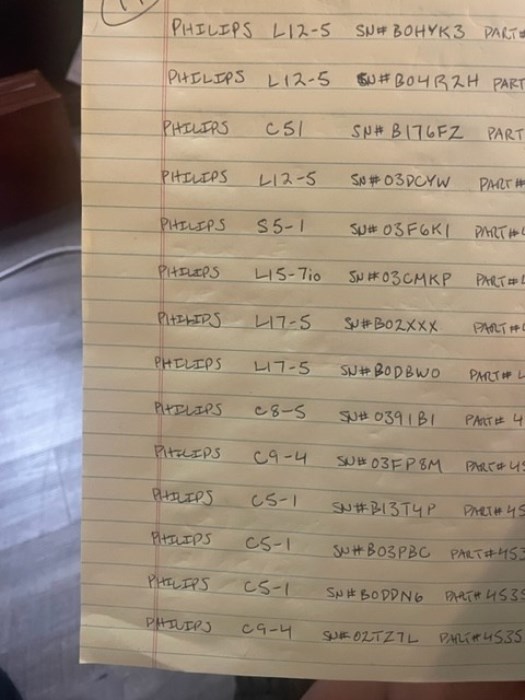 PHILIPS L12-5 SN# B0HYK3 PART#
PHILIPS L12-5 SN# B04R2H PART
PHILIPS C51 SN# B176FZ PART
PHILIPS L12-5 SN# 03DCYW PART#
PHILIPS S5-1 SN# 03F6K1 PART#4
PHILIPS L15-7io SN#03CMKP PART#4
PHILIPS L17-5 SN#B02XXX PART#
PHILIPS L17-5 SN#B0DBW0 PART# 4
PHILIPS C8-5 SN#0391B1 PART# 4
PHILIPS C9-4 SN#03FP8M PART#45
PHILIPS C5-1 SN#B13T4P PART#45
PHILIPS C5-1 SN#B03PBC PART#453
PHILIPS C5-1 SN#B0DDN6 PART#4535
PHILIPS C9-4 SN#02TZ7L PART#4535